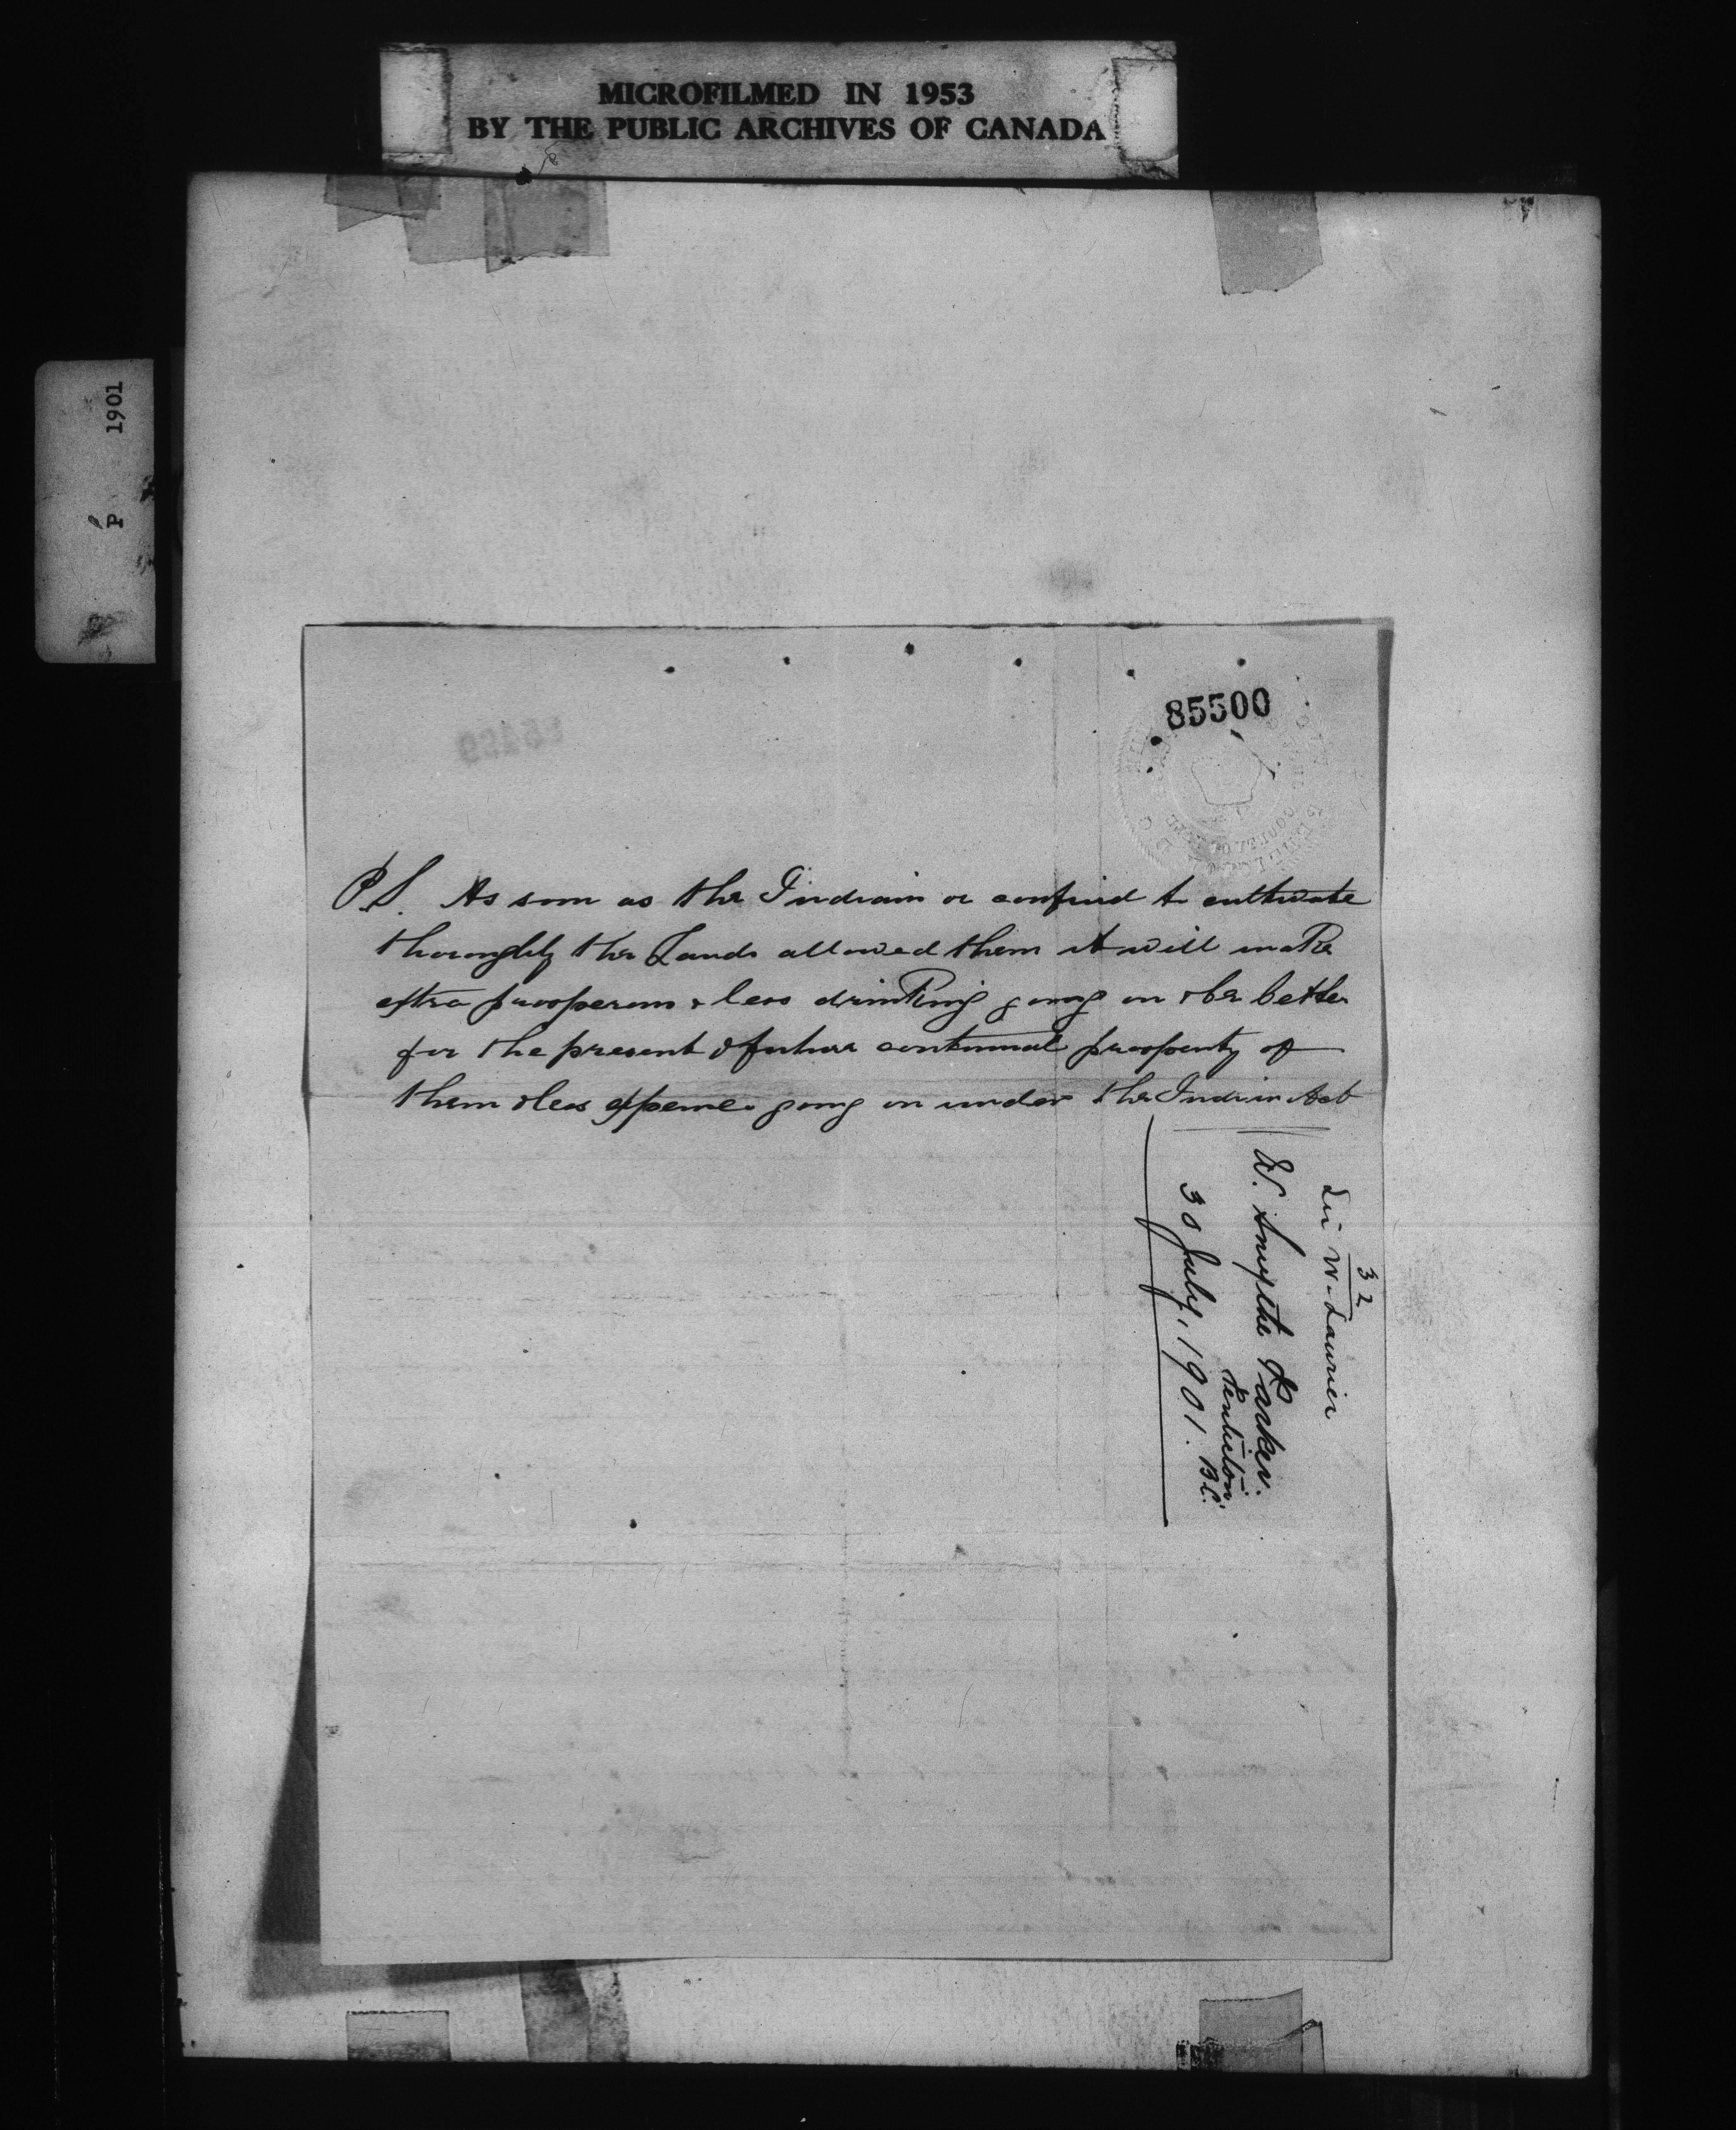 MICROFILMED IN 1953
BY THE PUBLIC ARCHIVES OF CANADA
P 1901
85500
P.S. As soon as the Indians or confind to cultivate
thoroughly the Lands allowed them it will make
extra prosperous & less drinking going on & be better
for the present & future continual prosperity of
them & less expense going on under the Indian Act
32
Sir W. Laurier
W. Smythe Parker.
Penticton, B.C.
30 July, 1901.